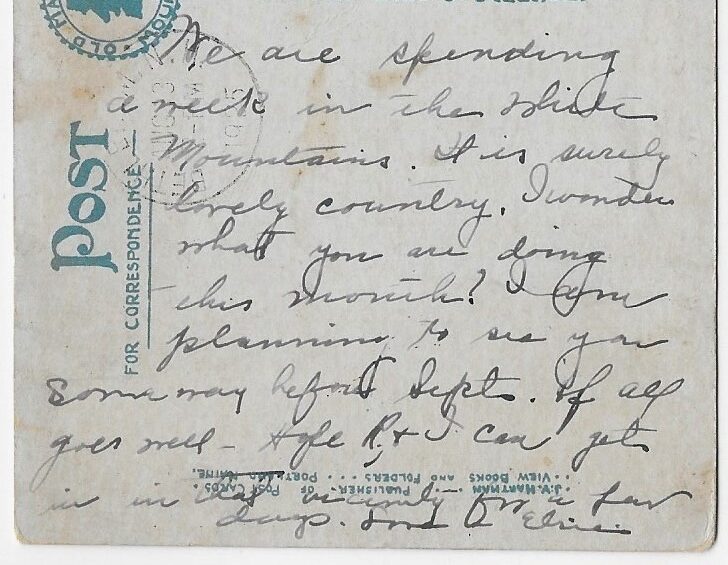 We are spending
a week in the White
Mountains. It is surely
lovely country. I wonder
what you are doing
this month? I am
planning to see you
some way before Sept. If all
goes well - R. & I can get
in in that vicinity for a few
days. Love Elsie.
POST
FOR CORRESPONDENCE
OLD MA
J.V. HARTMAN PUBLISHER OF POST CARDS
VIEW BOOKS AND FOLDERS PORTLAND MAINE.